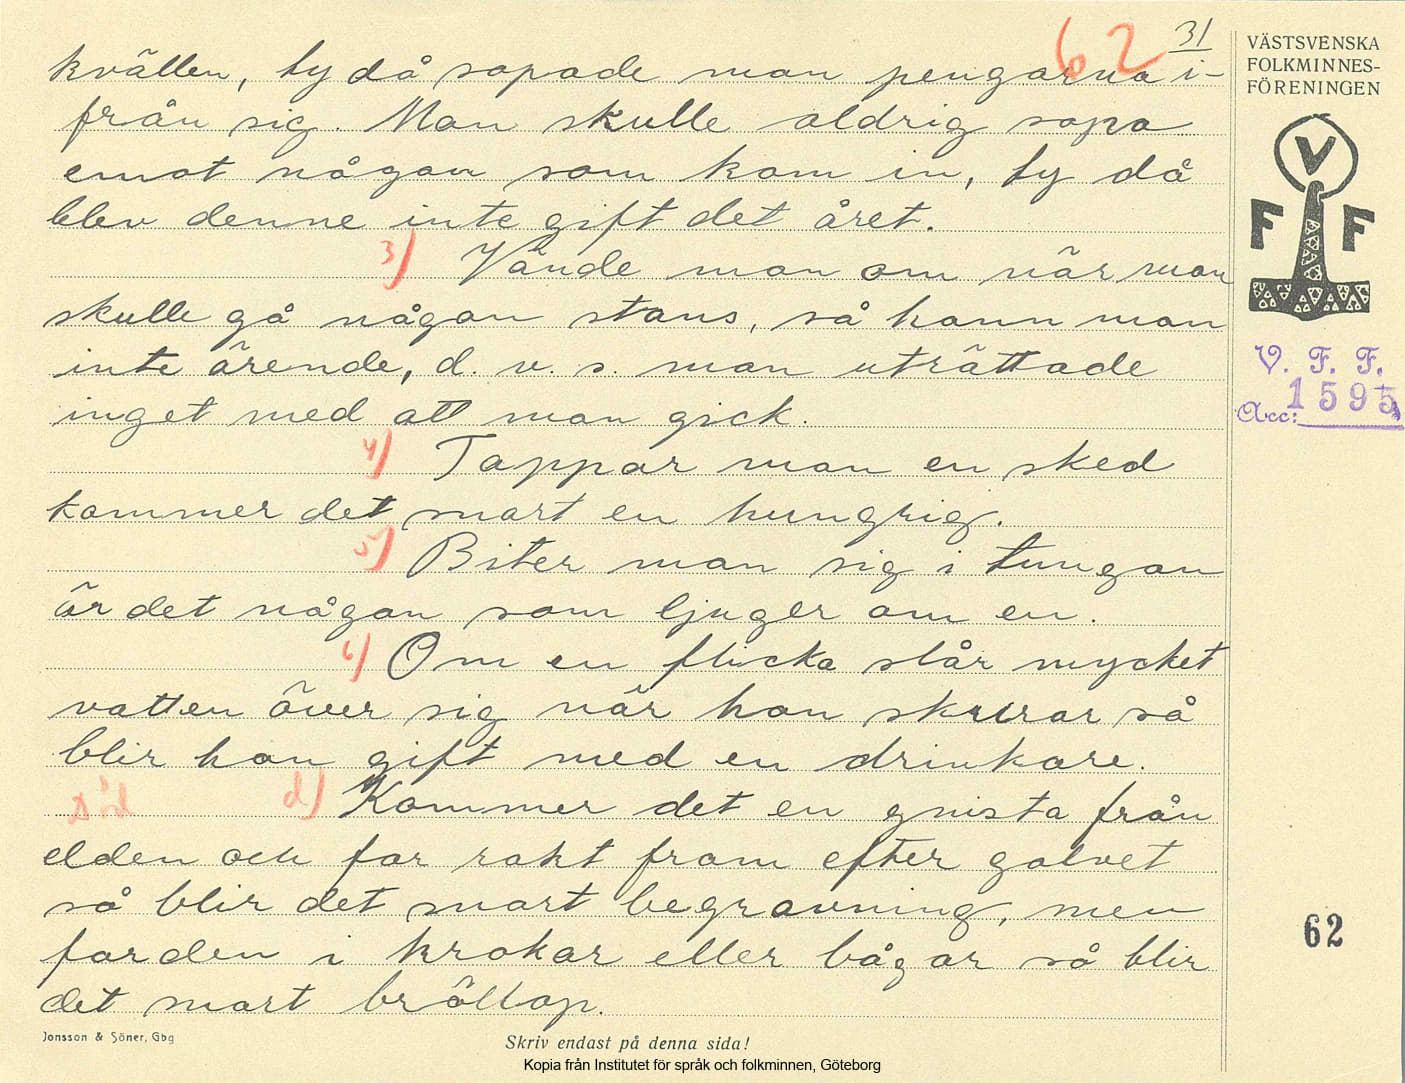 62 31
kvällen, ty då sopade man pengarna i-
från sig. Man skulle aldrig sopa
emot någon som kom in, ty då
blev denne inte gift det året.
3) Vände man om när man
skulle gå någon stans, så hann man
inte ärende, d. v. s. man uträttade
inget med att man gick.
4) Tappar man en sked
kommer det snart en hungrig.
5) Biter man sig i tungan
är det någon som ljuger om en.
6) Om en flicka slår mycket
vatten över sig när hon skurar så
blir hon gift med en drinkare.
Död d) Kommer det en gnista från
elden och far rakt fram efter golvet
så blir det snart begravning, men
far den i krokar eller bågar så blir
det snart bröllop.
Jonsson & Söner, Gbg
Skriv endast på denna sida!
Kopia från Institutet för språk och folkminnen, Göteborg
VÄSTSVENSKA
FOLKMINNES-
FÖRENINGEN
V
F F
V. F. F.
Acc: 1595
62